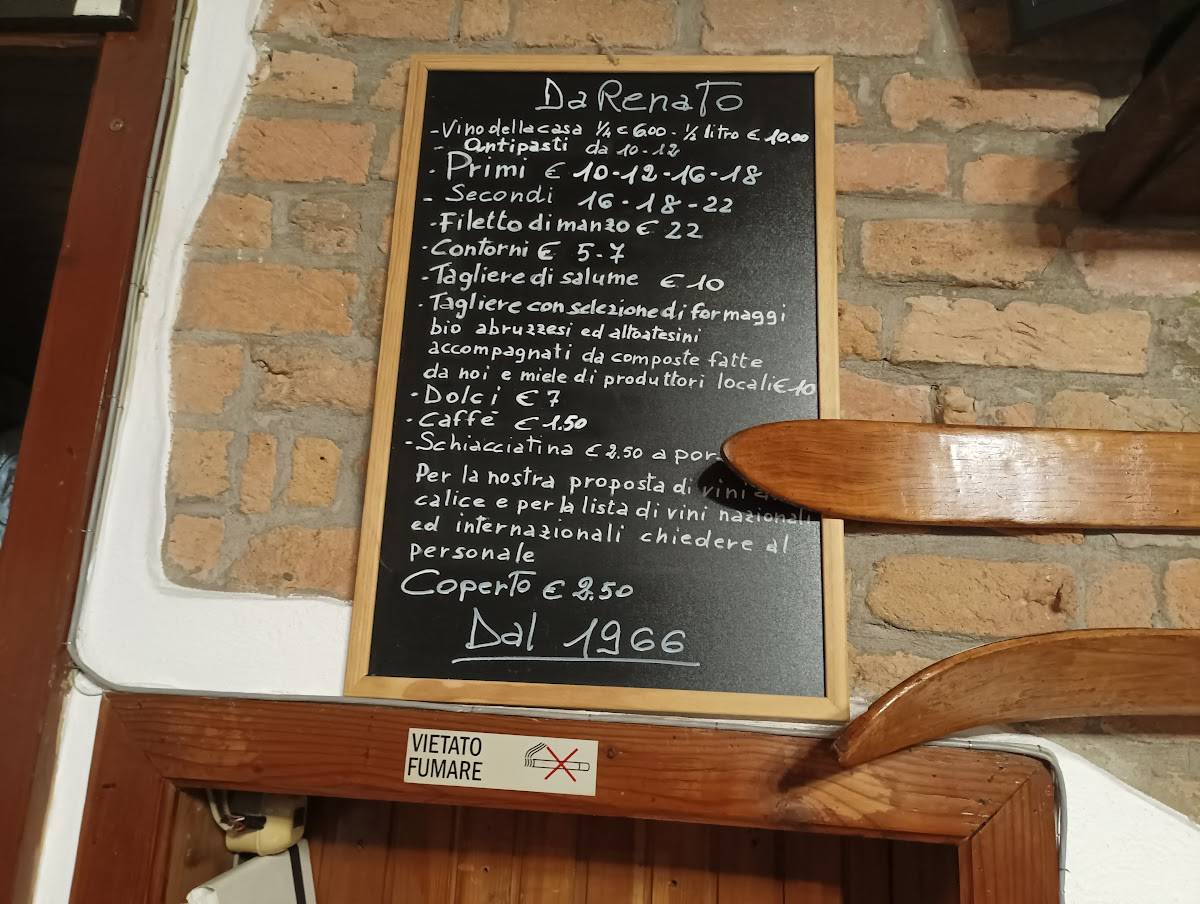 Da Renato
- Vino della casa ¼ € 6,00 - ½ litro € 10,00
- Antipasti da 10-12
- Primi € 10-12-16-18
- Secondi 16-18-22
- Filetto di manzo € 22
- Contorni € 5-7
- Tagliere di salume € 10
- Tagliere con selezione di formaggi
bio abruzzesi ed altoatesini
accompagnati da composte fatte
da noi e miele di produttori locali € 10
- Dolci € 7
- Caffè € 1.50
- Schiacciatina € 2.50 a por
Per la nostra proposta di vini
calice e per la lista di vini nazionali
ed internazionali chiedere al
personale
Coperto € 2.50
Dal 1966
VIETATO
FUMARE